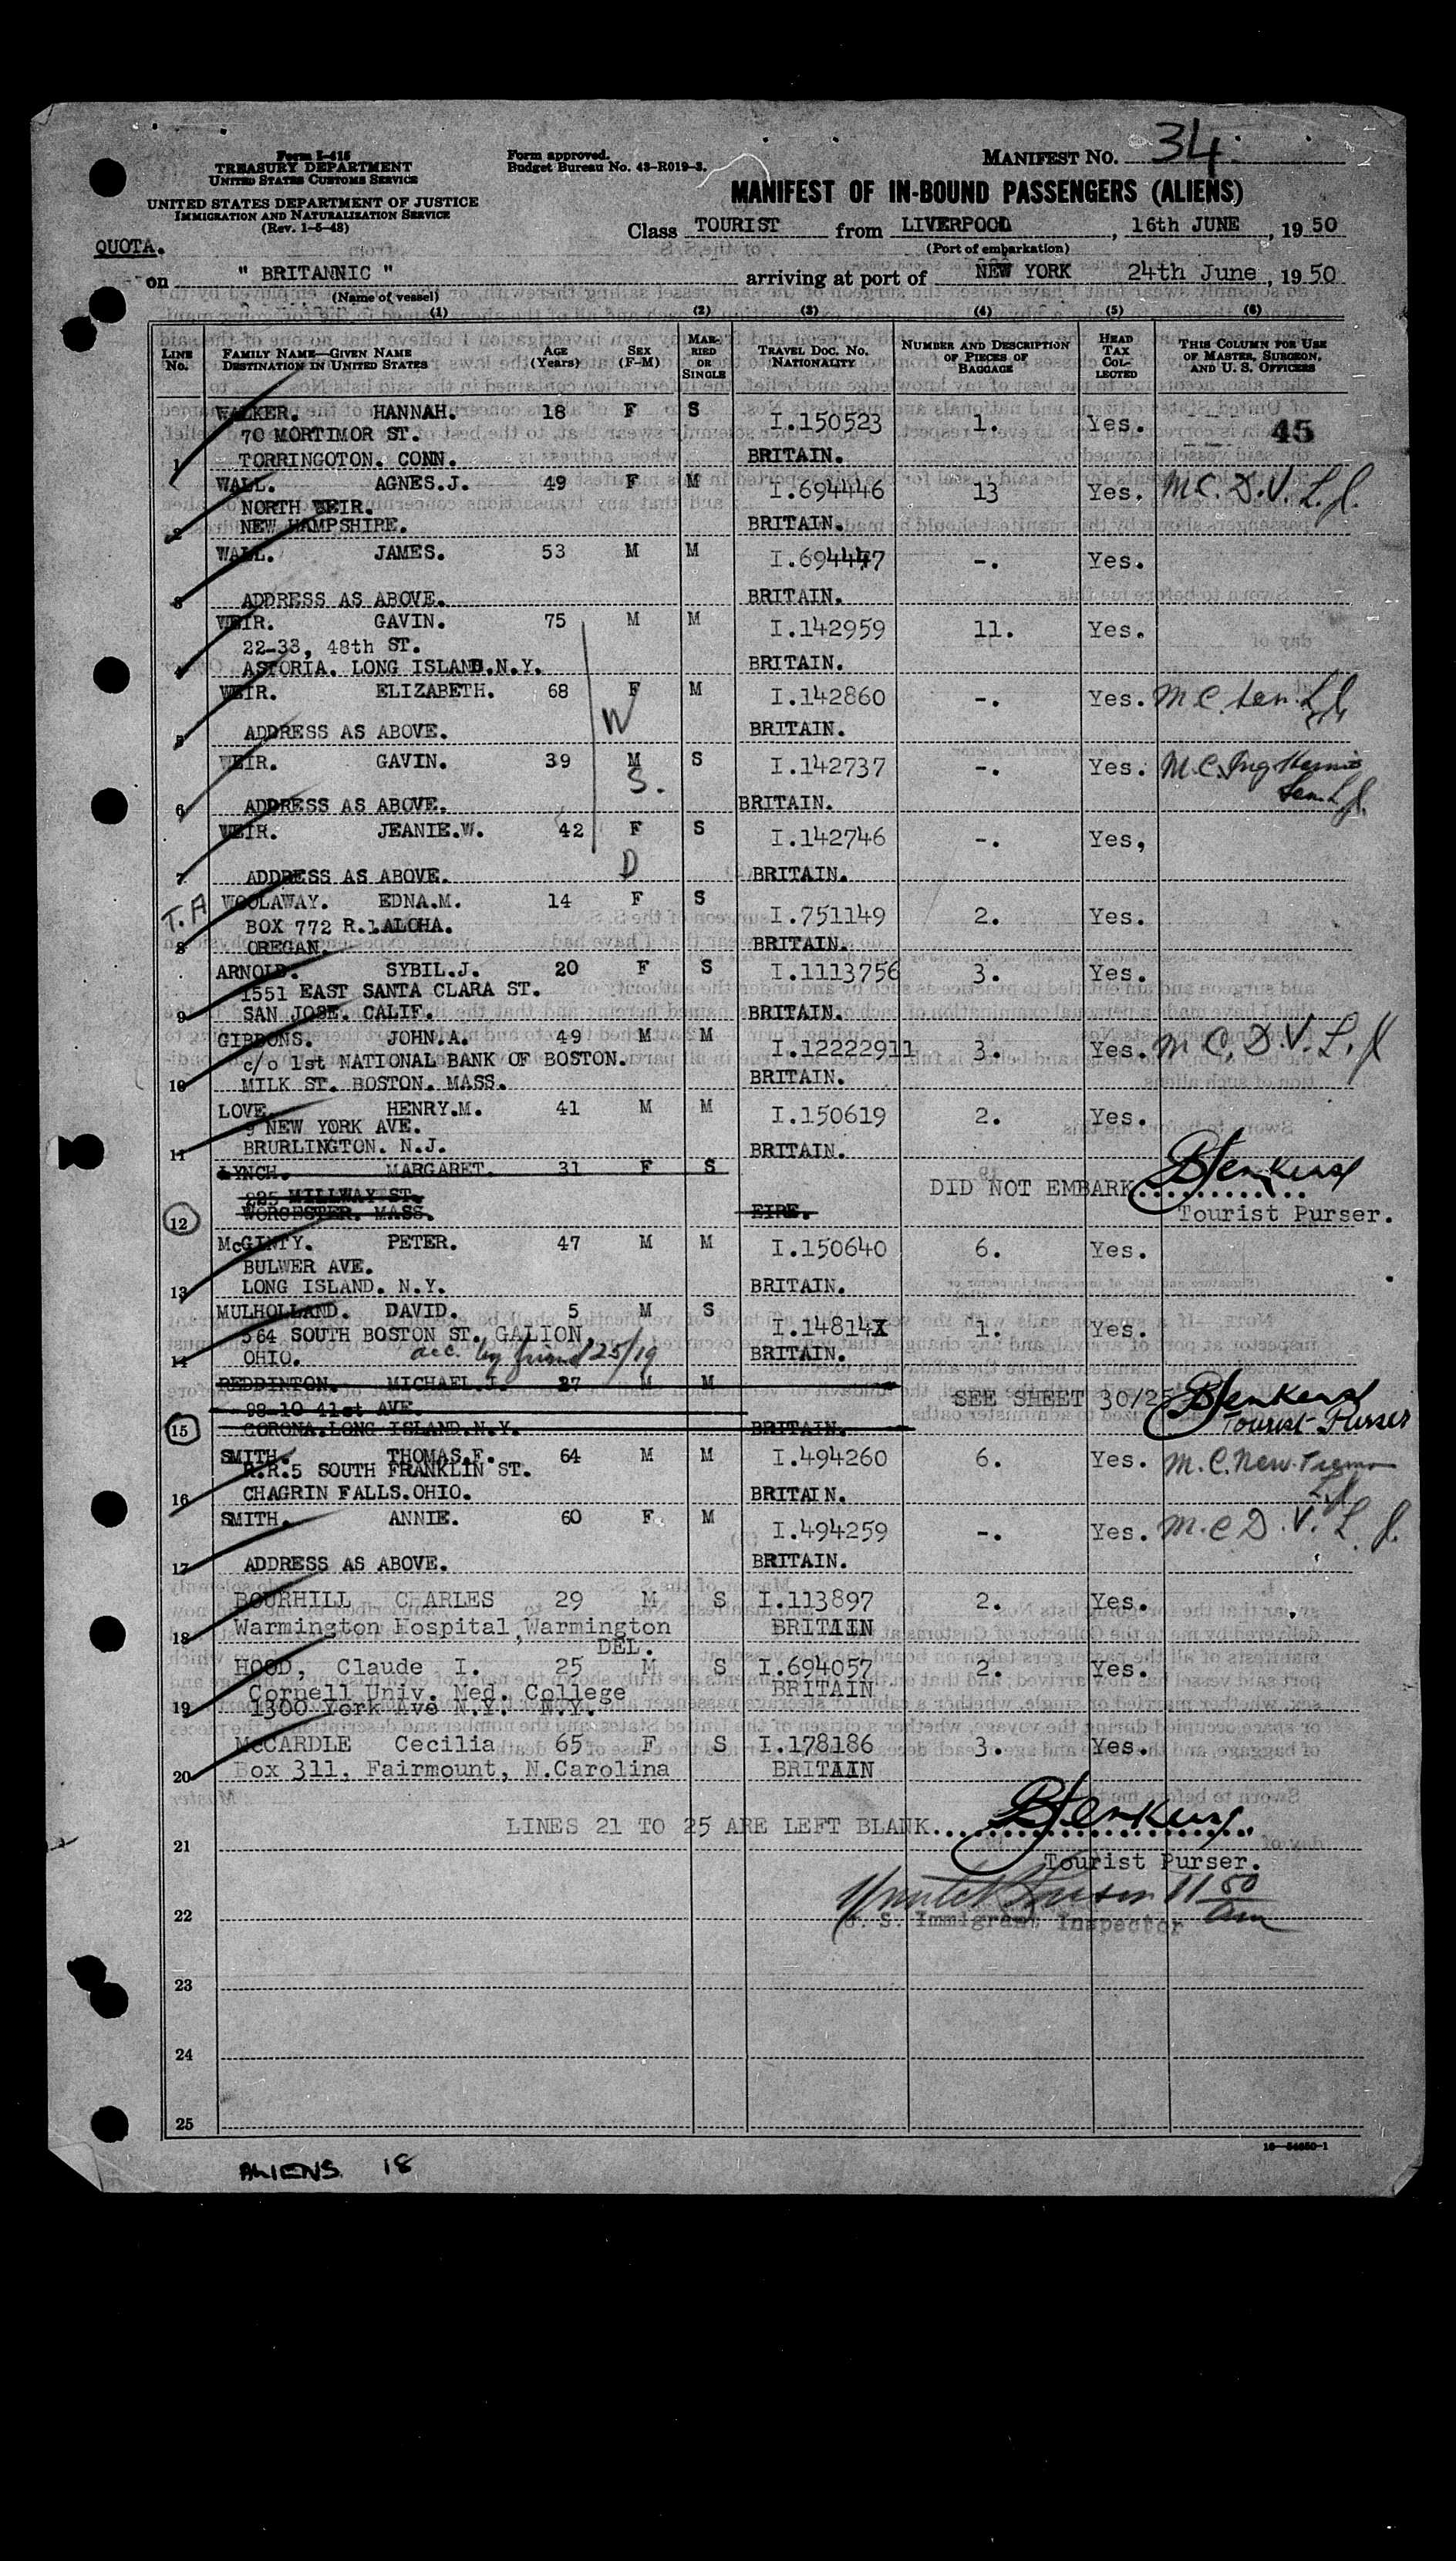 Form I-415
TREASURY DEPARTMENT
UNITED STATES CUSTOMS SERVICE
UNITED STATES DEPARTMENT OF JUSTICE
IMMIGRATION AND NATURALIZATION SERVICE
(Rev. 1-5-48)
Form approved.
Budget Bureau No. 43-R019-3.
MANIFEST NO. 34
MANIFEST OF IN-BOUND PASSENGERS (ALIENS)
QUOTA.
Class TOURIST from LIVERPOOL, 16th JUNE, 1950
(Port of embarkation)
on " BRITANNIC " arriving at port of NEW YORK 24th June, 1950
(Name of vessel)
(1) (2) (3) (4) (5) (6)
LINE No. FAMILY NAME—GIVEN NAME DESTINATION IN UNITED STATES AGE (Years) SEX (F-M) MARRIED OR SINGLE TRAVEL DOC. NO. NATIONALITY NUMBER AND DESCRIPTION OF PIECES OF BAGGAGE HEAD TAX COLLECTED THIS COLUMN FOR USE OF MASTER, SURGEON, AND U. S. OFFICERS
WALKER. HANNAH. 18 F S I.150523 1. Yes. 45
70 MORTIMOR ST.
1 TORRINGOTON. CONN. BRITAIN.
WALL. AGNES.J. 49 F M I.694446 13 Yes. M.C. D.V. L.J.
NORTH WEIR.
2 NEW HAMPSHIRE. BRITAIN.
WALL. JAMES. 53 M M I.694447 -. Yes.
3 ADDRESS AS ABOVE. BRITAIN.
WEIR. GAVIN. 75 M M I.142959 11. Yes.
22-33, 48th ST.
4 ASTORIA. LONG ISLAND.N.Y. BRITAIN.
WEIR. ELIZABETH. 68 F M I.142860 -. Yes. M.C. Sen.
W
5 ADDRESS AS ABOVE. BRITAIN.
WEIR. GAVIN. 39 M S I.142737 -. Yes. M.C. Ing Hernia
S.
6 ADDRESS AS ABOVE. BRITAIN.
WEIR. JEANIE.W. 42 F S I.142746 -. Yes,
D
7 ADDRESS AS ABOVE. BRITAIN.
T.A WOOLAWAY. EDNA.M. 14 F S I.751149 2. Yes.
BOX 772 R.1.ALOHA.
8 OREGAN. BRITAIN.
ARNOLD. SYBIL.J. 20 F S I.1113756 3. Yes.
1551 EAST SANTA CLARA ST.
9 SAN JOSE. CALIF. BRITAIN.
GIBBONS. JOHN.A. 49 M M I.12222911 3. Yes. M.C. D.V. L.J
c/o 1st NATIONAL BANK OF BOSTON.
10 MILK ST. BOSTON. MASS. BRITAIN.
LOVE. HENRY.M. 41 M M I.150619 2. Yes.
9 NEW YORK AVE.
11 BRURLINGTON. N.J. BRITAIN.
LYNCH. MARGARET. 31 F S
225 MILLWAY ST. DID NOT EMBARK BJenkins
12 WORCESTER. MASS. EIRE. Tourist Purser.
McGINTY. PETER. 47 M M I.150640 6. Yes.
BULWER AVE.
13 LONG ISLAND. N.Y. BRITAIN.
MULHOLLAND. DAVID. 5 M S I.14814X 1. Yes.
564 SOUTH BOSTON ST. GALION.
14 OHIO. acc. by friend 25/19 BRITAIN.
REDDINTON. MICHAEL.J. 27 M M SEE SHEET 30/25 BJenkins
98-10 41st AVE. Tourist Purser
15 CORONA.LONG ISLAND.N.Y. BRITAIN.
SMITH. THOMAS.F. 64 M M I.494260 6. Yes. M.C.
R.R.5 SOUTH FRANKLIN ST.
16 CHAGRIN FALLS.OHIO. BRITAIN.
SMITH. ANNIE. 60 F. M I.494259 -. Yes. M.C D.V. L.J.
17 ADDRESS AS ABOVE. BRITAIN.
BOURHILL CHARLES 29 M S I.113897 2. Yes.
18 Warmington Hospital,Warmington BRITAIN
DEL.
HOOD, Claude I. 25 M S I.694057 2. Yes.
Cornell Univ. Med. College BRITAIN
19 1300 York Ave N.Y. N.Y.
McCARDLE Cecilia 65 F S I.178186 3. Yes.
20 Box 311, Fairmount, N.Carolina BRITAIN
LINES 21 TO 25 ARE LEFT BLANK. BJenkins
21 Tourist Purser.
11 50 am
22 U. S. Immigrant Inspector
23
24
25
16—54650-1
ALIENS 18